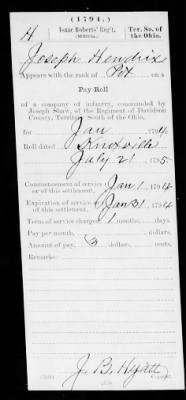 (1794.)
H
Isaac Roberts' Reg't
(MILITIA.)
Ter. So. of
the Ohio.
Joseph Hendrix
Appears with the rank of Pvt on a
Pay Roll
of a company of infantry, commanded by
Joseph Shaw, of the Regiment of Davidson
County, Territory South of the Ohio,
for Jan , 1794.
Roll dated Knoxville
July 21 , 1795
Commencement of service
or of this settlement, Jan 1 , 1794
Expiration of service
of this settlement, Jan 31 , 1794
Term of service charged 1 months, days
Pay per month, dollars, cents.
Amount of pay, 3 dollars, cents.
Remarks:
J. B. Hyatt
Copyist.